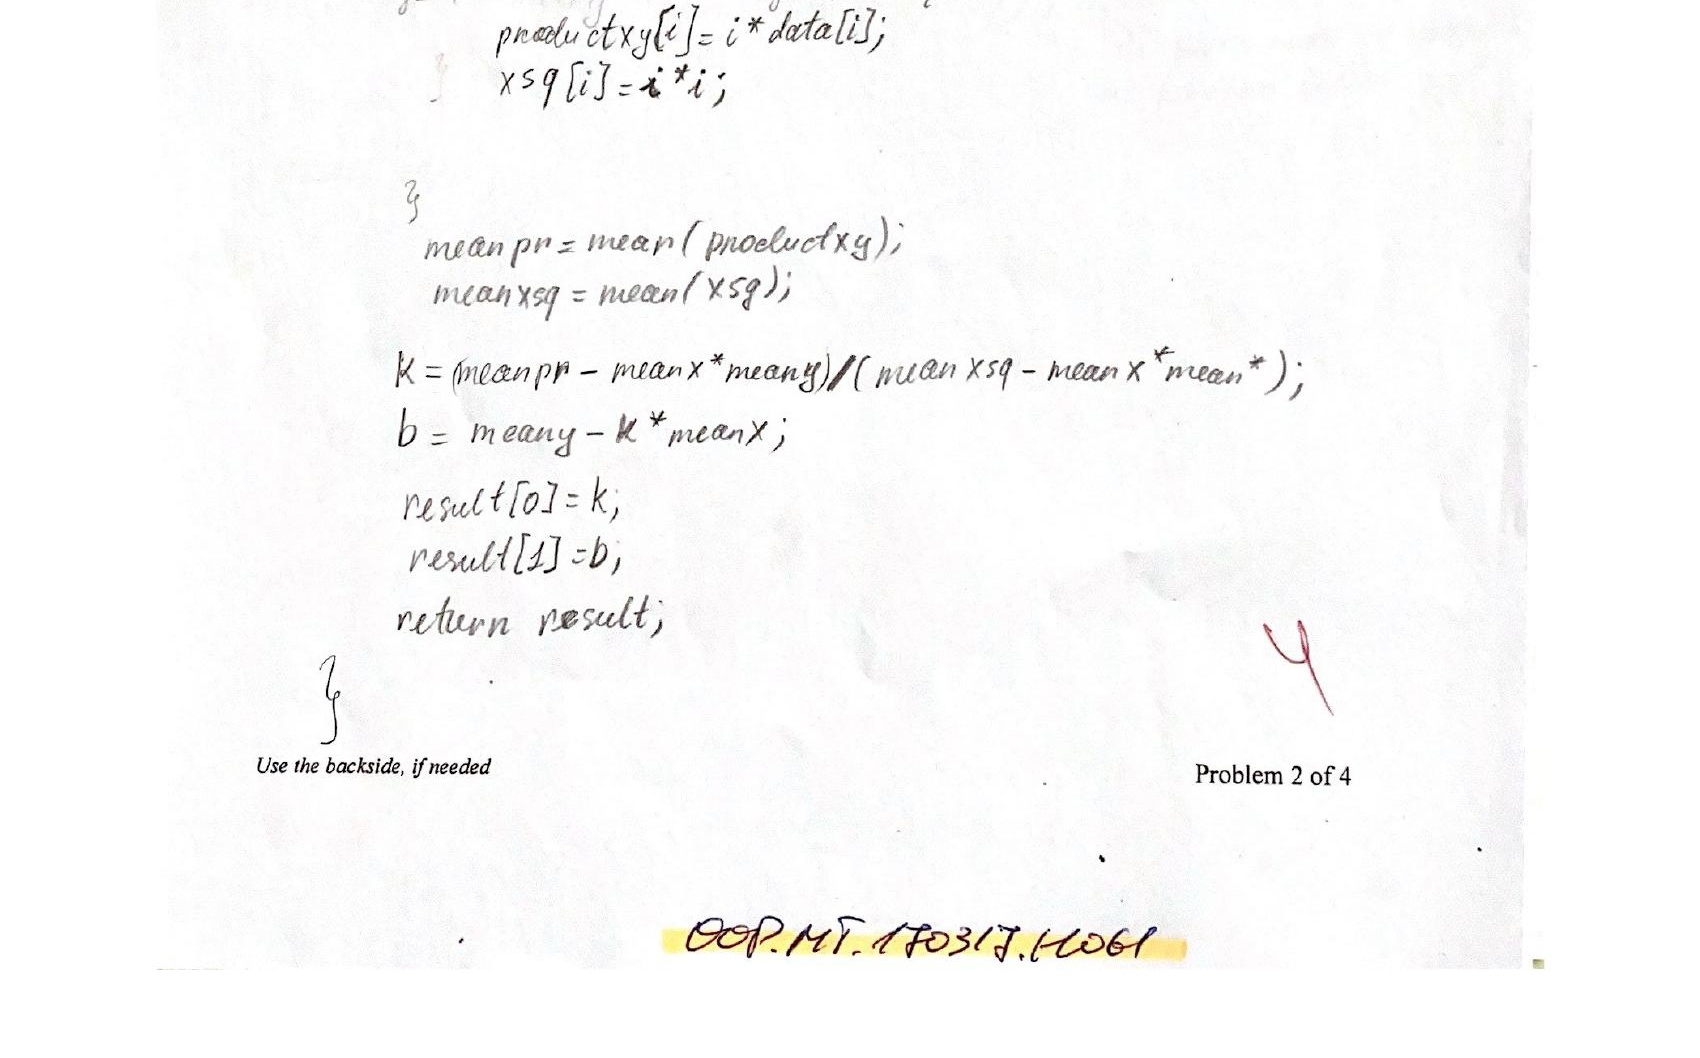 productxy[i]= i* data[i];
} xsq[i]=i*i;
}
meanpr = mean(productxy);
meanxsq = mean(xsq);
k = (meanpr - meanx*meany)/(meanxsq - meanx*mean*);
b = meany - k*meanx;
result[0]=k;
result[1]=b;
return result;
}
4
Use the backside, if needed
Problem 2 of 4
OOP.MT.170317.H061